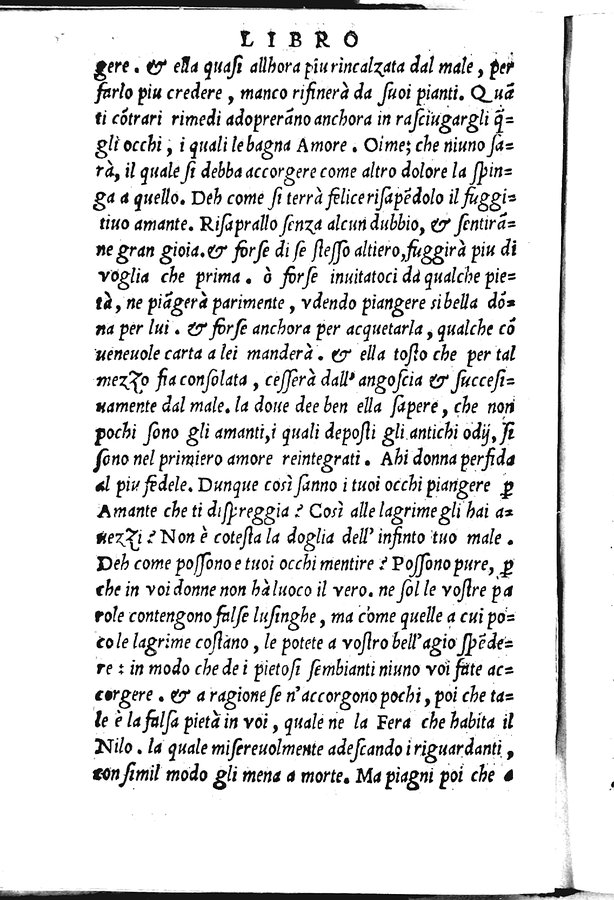 LIBRO
gere . & ella quaſi allhora piu rincalzata dal male , per
farlo piu credere , manco rifinerà da ſuoi pianti. Quã
ti cõtrari rimedi adopreràno anchora in raſciugargli q̃=
gli occhi , i quali le bagna Amore . Oime; che niuno ſa=
rà, il quale ſi debba accorgere come altro dolore la ſpin=
ga a quello. Deh come ſi terrà felice riſapẽdolo il fuggi=
tiuo amante. Riſaprallo ſenza alcun dubbio, & ſentirà=
ne gran gioia. & forſe di ſe ſteſſo altiero, fuggirà piu di
voglia che prima . ò forſe inuitatoci da qualche pie=
tà, ne piãgerà parimente , vdendo piangere sì bella dõ=
na per lui . & forſe anchora per acquetarla , qualche cõ
ueneuole carta a lei manderà . & ella toſto che per tal
mezzo fia conſolata , ceſſerà dall' angoſcia & ſucceſi=
uamente dal male. la doue dee ben ella ſapere , che non
pochi ſono gli amanti, i quali depoſti gli antichi odij, ſi
ſono nel primiero amore reintegrati . Ahi donna perfida
al piu fedele. Dunque così ſanno i tuoi occhi piangere ꝑ
Amante che ti diſpreggia ? Così alle lagrime gli hai a=
uezzi ? Non è coteſta la doglia dell' infinto tuo male .
Deh come poſſono e tuoi occhi mentire ? Poſſono pure, ꝑ
che in voi donne non hà luoco il vero. ne ſol le voſtre pa
role contengono falſe luſinghe , ma come quelle a cui po=
co le lagrime coſtano , le potete a voſtro bell'agio ſpẽde=
re : in modo che de i pietoſi ſembianti niuno voi fate ac=
corgere . & a ragione ſe n'accorgono pochi , poi che ta=
le è la falſa pietà in voi , quale ne la Fera che habita il
Nilo . la quale miſereuolmente adeſcando i riguardanti ,
con ſimil modo gli mena a morte. Ma piagni poi che a